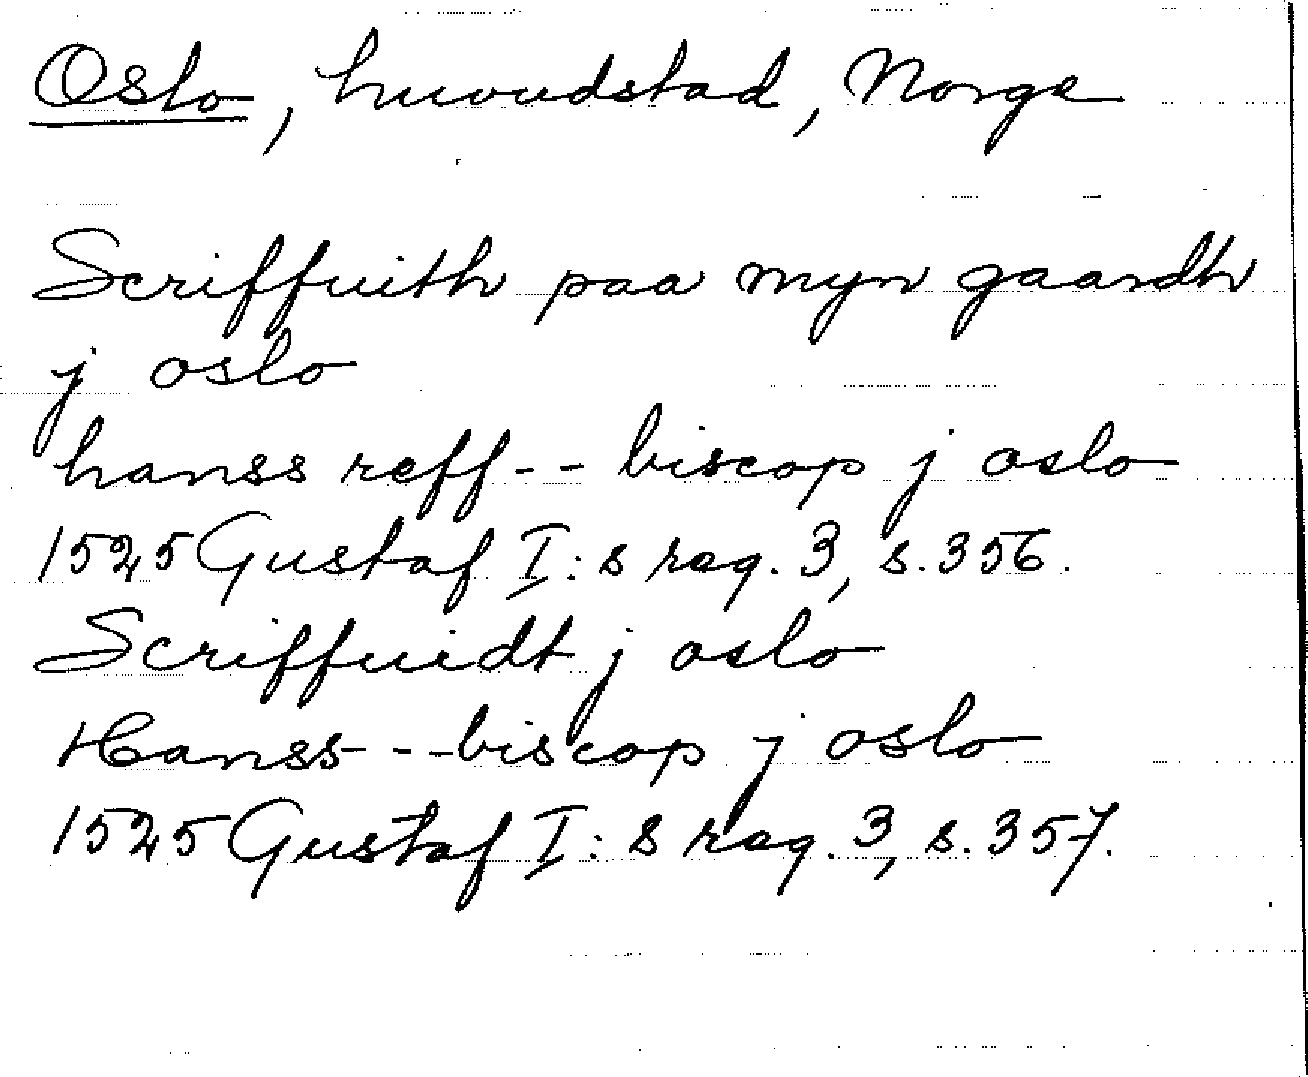 Oslo, huvudstad, Norge
Scriffuith paa myn gaardh
j oslo
hanss reff-- biscop j oslo
1525 Gustaf I:s reg. 3, s. 356.
Scriffuidt j oslo
Hanss -- biscop j oslo
1525 Gustaf I:s reg. 3, s. 357.